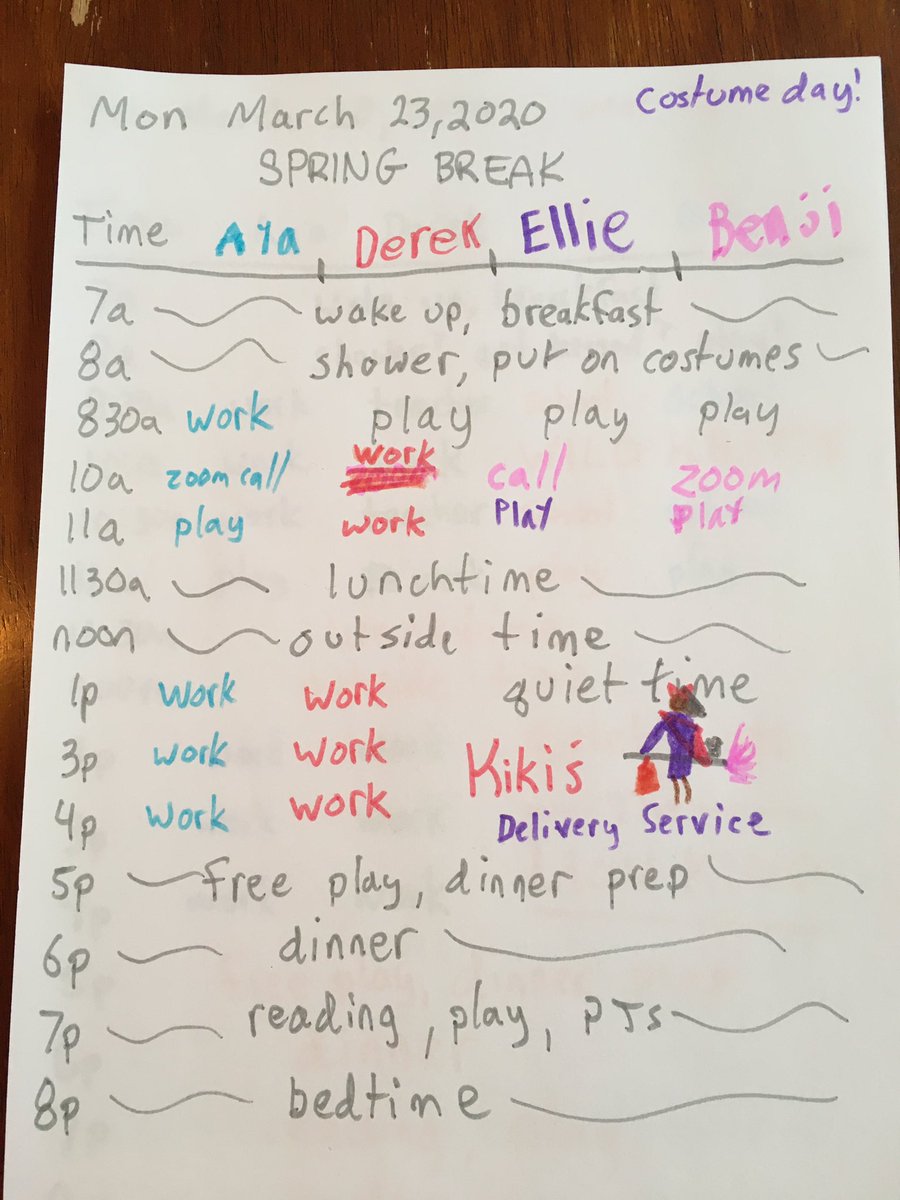 Costume day!
Mon March 23, 2020
SPRING BREAK
Time Aya Derek Ellie Benji
7a wake up, breakfast
8a shower, put on costumes
830a work play play play
10a zoom call work call zoom
11a play work Play Play
1130a lunchtime
noon outside time
1p work work quiet time
3p work work Kiki's
4p work work Delivery Service
5p free play, dinner prep
6p dinner
7p reading, play, PJs
8p bedtime